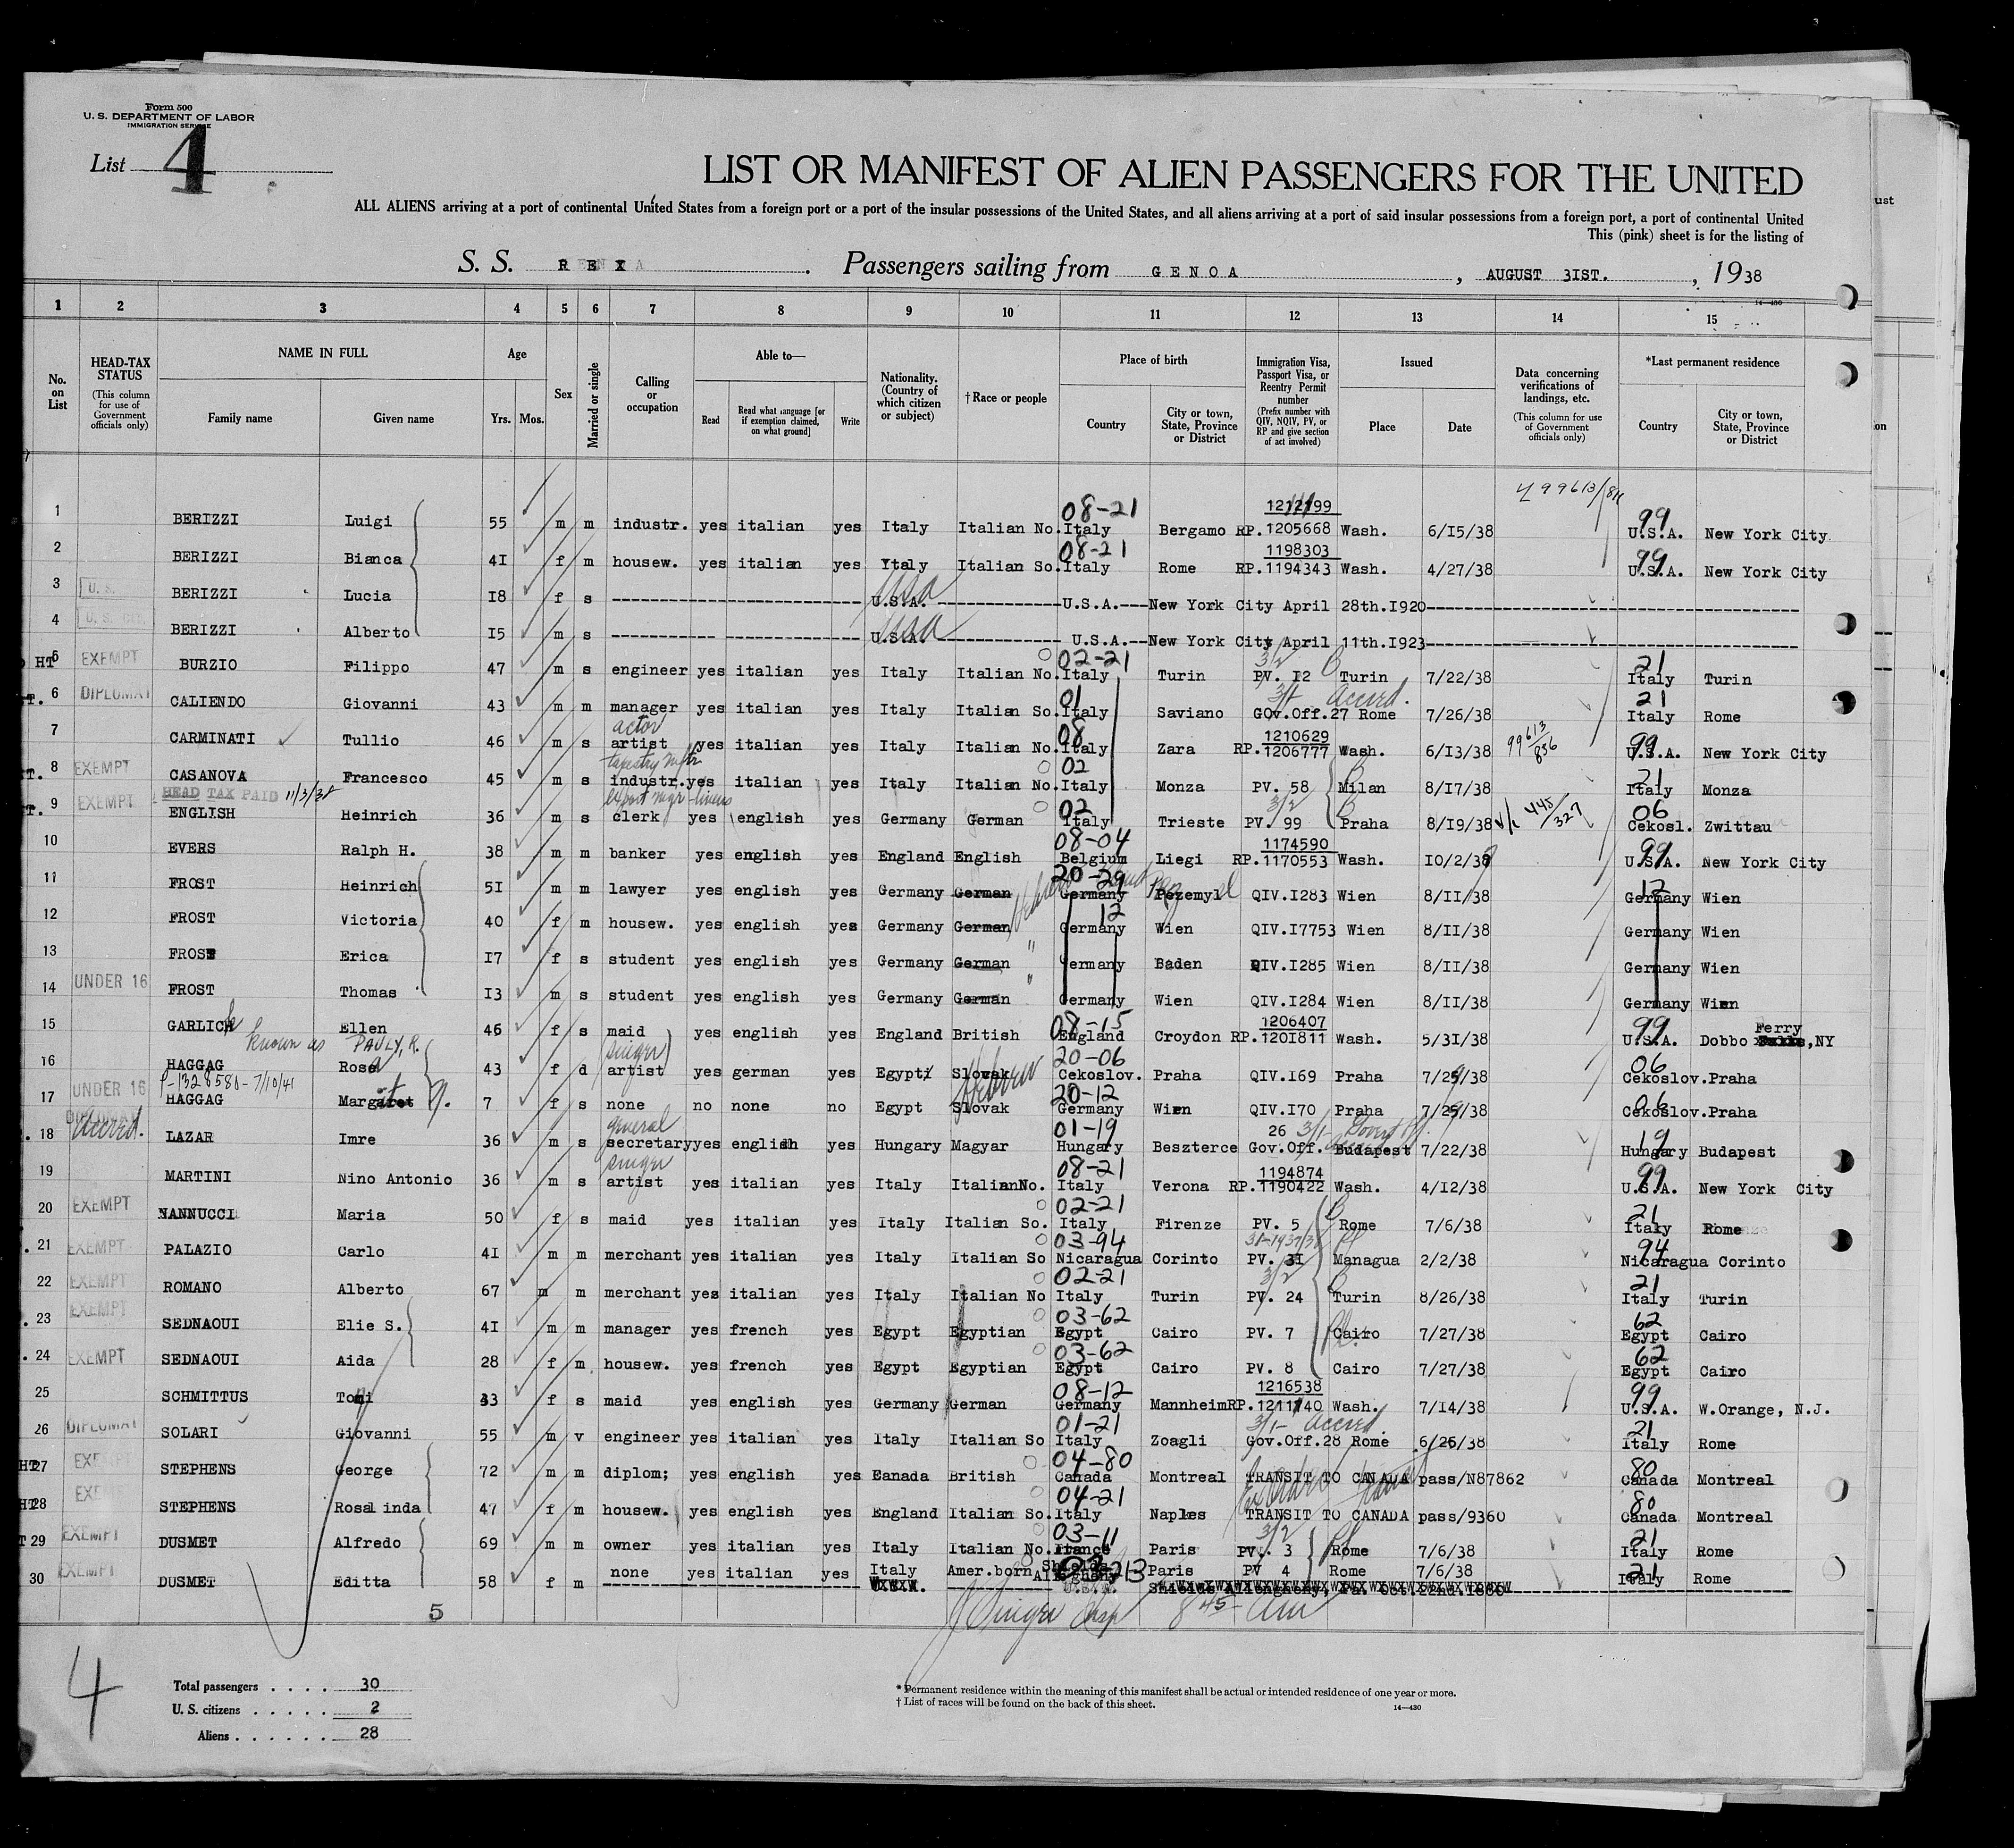 Form 500
U. S. DEPARTMENT OF LABOR
IMMIGRATION SERVICE
List 4
LIST OR MANIFEST OF ALIEN PASSENGERS FOR THE UNITED
ALL ALIENS arriving at a port of continental United States from a foreign port or a port of the insular possessions of the United States, and all aliens arriving at a port of said insular possessions from a foreign port, a port of continental United
This (pink) sheet is for the listing of
S. S. REX . Passengers sailing from GENOA , AUGUST 3IST. , 1938
14—430
1 2 3 4 5 6 7 8 9 10 11 12 13 14 15
No. on List
HEAD-TAX STATUS (This column for use of Government officials only)
NAME IN FULL
Family name
Given name
Age
Yrs. Mos.
Sex
Married or single
Calling or occupation
Able to—
Read
Read what language [or if exemption claimed, on what ground]
Write
Nationality. (Country of which citizen or subject)
†Race or people
Place of birth
Country
City or town, State, Province or District
Immigration Visa, Passport Visa, or Reentry Permit number (Prefix number with QIV, NQIV, PV, or RP and give section of act involved)
Issued
Place
Date
Data concerning verifications of landings, etc. (This column for use of Government officials only)
*Last permanent residence
Country
City or town, State, Province or District
08-21 99
1 BERIZZI Luigi 55 m m industr. yes italian yes Italy Italian No. Italy Bergamo RP. 1205668 Wash. 6/15/38 U.S.A. New York City
08-21 1198303 99
2 BERIZZI Bianca 4I f m housew. yes italian yes Italy Italian So. Italy Rome RP. 1194343 Wash. 4/27/38 U.S.A. New York City
3 U.S. BERIZZI Lucia I8 f s U.S.A. U.S.A. New York City April 28th.I920
4 BERIZZI Alberto I5 m s U.S.A. U.S.A. New York City April 11th.I923
02-21 3/2 21
HT 5 EXEMPT BURZIO Filippo 47 m s engineer yes italian yes Italy Italian No. Italy Turin PV. I2 Turin 7/22/38 Italy Turin
01 3/1 accred. 21
6 DIPLOMAT CALIENDO Giovanni 43 m m manager yes italian yes Italy Italian So. Italy Saviano GOv.Off.27 Rome 7/26/38 Italy Rome
actor 08 1210629 99613/856 99
7 CARMINATI Tullio 46 m s artist yes italian yes Italy Italian No. Italy Zara RP. 1206777 Wash. 6/13/38 U.S.A. New York City
tapestry mftr 02 21
8 EXEMPT CASANOVA Francesco 45 m s industr. yes italian yes Italy Italian No. Italy Monza PV. 58 Milan 8/17/38 Italy Monza
HEAD TAX PAID 11/3/38 export mgr - linens 02 3/2 445/327 06
9 EXEMPT ENGLISH Heinrich 36 m s clerk yes english yes Germany German Italy Trieste PV. 99 Praha 8/19/38 Cekosl. Zwittau
08-04 1174590 99
10 EVERS Ralph H. 38 m m banker yes english yes England English Belgium Liegi RP. 1170553 Wash. IO/2/38 U.S.A. New York City
20-29 12
11 FROST Heinrich 5I m m lawyer yes english yes Germany German Germany Pezemyl QIV.I283 Wien 8/II/38 Germany Wien
12
12 FROST Victoria 40 f m housew. yes english yes Germany German Germany Wien QIV.I7753 Wien 8/II/38 Germany Wien
13 FROST Erica I7 f s student yes english yes Germany German " Germany Baden QIV.I285 Wien 8/II/38 Germany Wien
14 UNDER 16 FROST Thomas I3 m s student yes english yes Germany German " Germany Wien QIV.I284 Wien 8/II/38 Germany Wien
08-15 1206407 99 Ferry
15 GARLICK Ellen 46 f s maid yes english yes England British England Croydon RP. 1201811 Wash. 5/31/38 U.S.A. Dobbo ,NY
known as PAULY, R. singer 20-06 06
16 HAGGAG Rosa 43 f d artist yes german yes Egypt Slovak Hebrew Cekoslov. Praha QIV.I69 Praha 7/29/38 Cekoslov. Praha
P-1328580-7/10/41 20-12 06
17 UNDER 16 HAGGAG Margit 7 f s none no none no Egypt Slovak Germany Wien QIV.I70 Praha 7/29/38 Cekoslov. Praha
DIPLOMAT Accred. general 01-19 26 3/1 19
18 LAZAR Imre 36 m s secretary yes english yes Hungary Magyar Hungary Beszterce Gov.Off. Budapest 7/22/38 Hungary Budapest
singer 08-21 1194874 99
19 MARTINI Nino Antonio 36 m s artist yes italian yes Italy Italian No. Italy Verona RP. 1190422 Wash. 4/12/38 U.S.A. New York City
02-21 21
20 EXEMPT NANNUCCI Maria 50 f s maid yes italian yes Italy Italian So. Italy Firenze PV. 5 Rome 7/6/38 Italy Rome
03-94 94
21 EXEMPT PALAZIO Carlo 4I m m merchant yes italian yes Italy Italian So Nicaragua Corinto PV. 3I Managua 2/2/38 Nicaragua Corinto
02-21 3/2 21
22 EXEMPT ROMANO Alberto 67 m m merchant yes italian yes Italy Italian No Italy Turin PV. 24 Turin 8/26/38 Italy Turin
03-62 62
23 EXEMPT SEDNAOUI Elie S. 4I m m manager yes french yes Egypt Egyptian Egypt Cairo PV. 7 Cairo 7/27/38 Egypt Cairo
03-62 62
24 EXEMPT SEDNAOUI Aida 28 f m housew. yes french yes Egypt Egyptian Egypt Cairo PV. 8 Cairo 7/27/38 Egypt Cairo
08-12 1216538 99
25 SCHMITTUS Toni 33 f s maid yes english yes Germany German Germany Mannheim RP. 1211140 Wash. 7/14/38 U.S.A. W.Orange, N.J.
01-21 3/1- accred. 21
26 DIPLOMAT SOLARI Giovanni 55 m v engineer yes italian yes Italy Italian So Italy Zoagli Gov.Off.28 Rome 6/25/38 Italy Rome
04-80 80
HT 27 EXEMPT STEPHENS George 72 m m diplom; yes english yes Canada British Canada Montreal TRANSIT TO CANADA pass/N87862 Canada Montreal
04-21 80
HT 28 EXE STEPHENS Rosalinda 47 f m housew. yes english yes England Italian So. Italy Naples TRANSIT TO CANADA pass/9360 Canada Montreal
03-11 3/2 21
29 EXEMPT DUSMET Alfredo 69 m m owner yes italian yes Italy Italian No. France Paris PV. 3 Rome 7/6/38 Italy Rome
30 EXEMPT DUSMET Editta 58 f m none yes italian yes Italy Amer.born Shields Paris PV 4 Rome 7/6/38 21 Italy Rome
5
J Singer Insp 8 45 am
4
Total passengers . . . . 30
U. S. citizens . . . . . 2
Aliens . . . . . . 28
* Permanent residence within the meaning of this manifest shall be actual or intended residence of one year or more.
† List of races will be found on the back of this sheet.
14—430